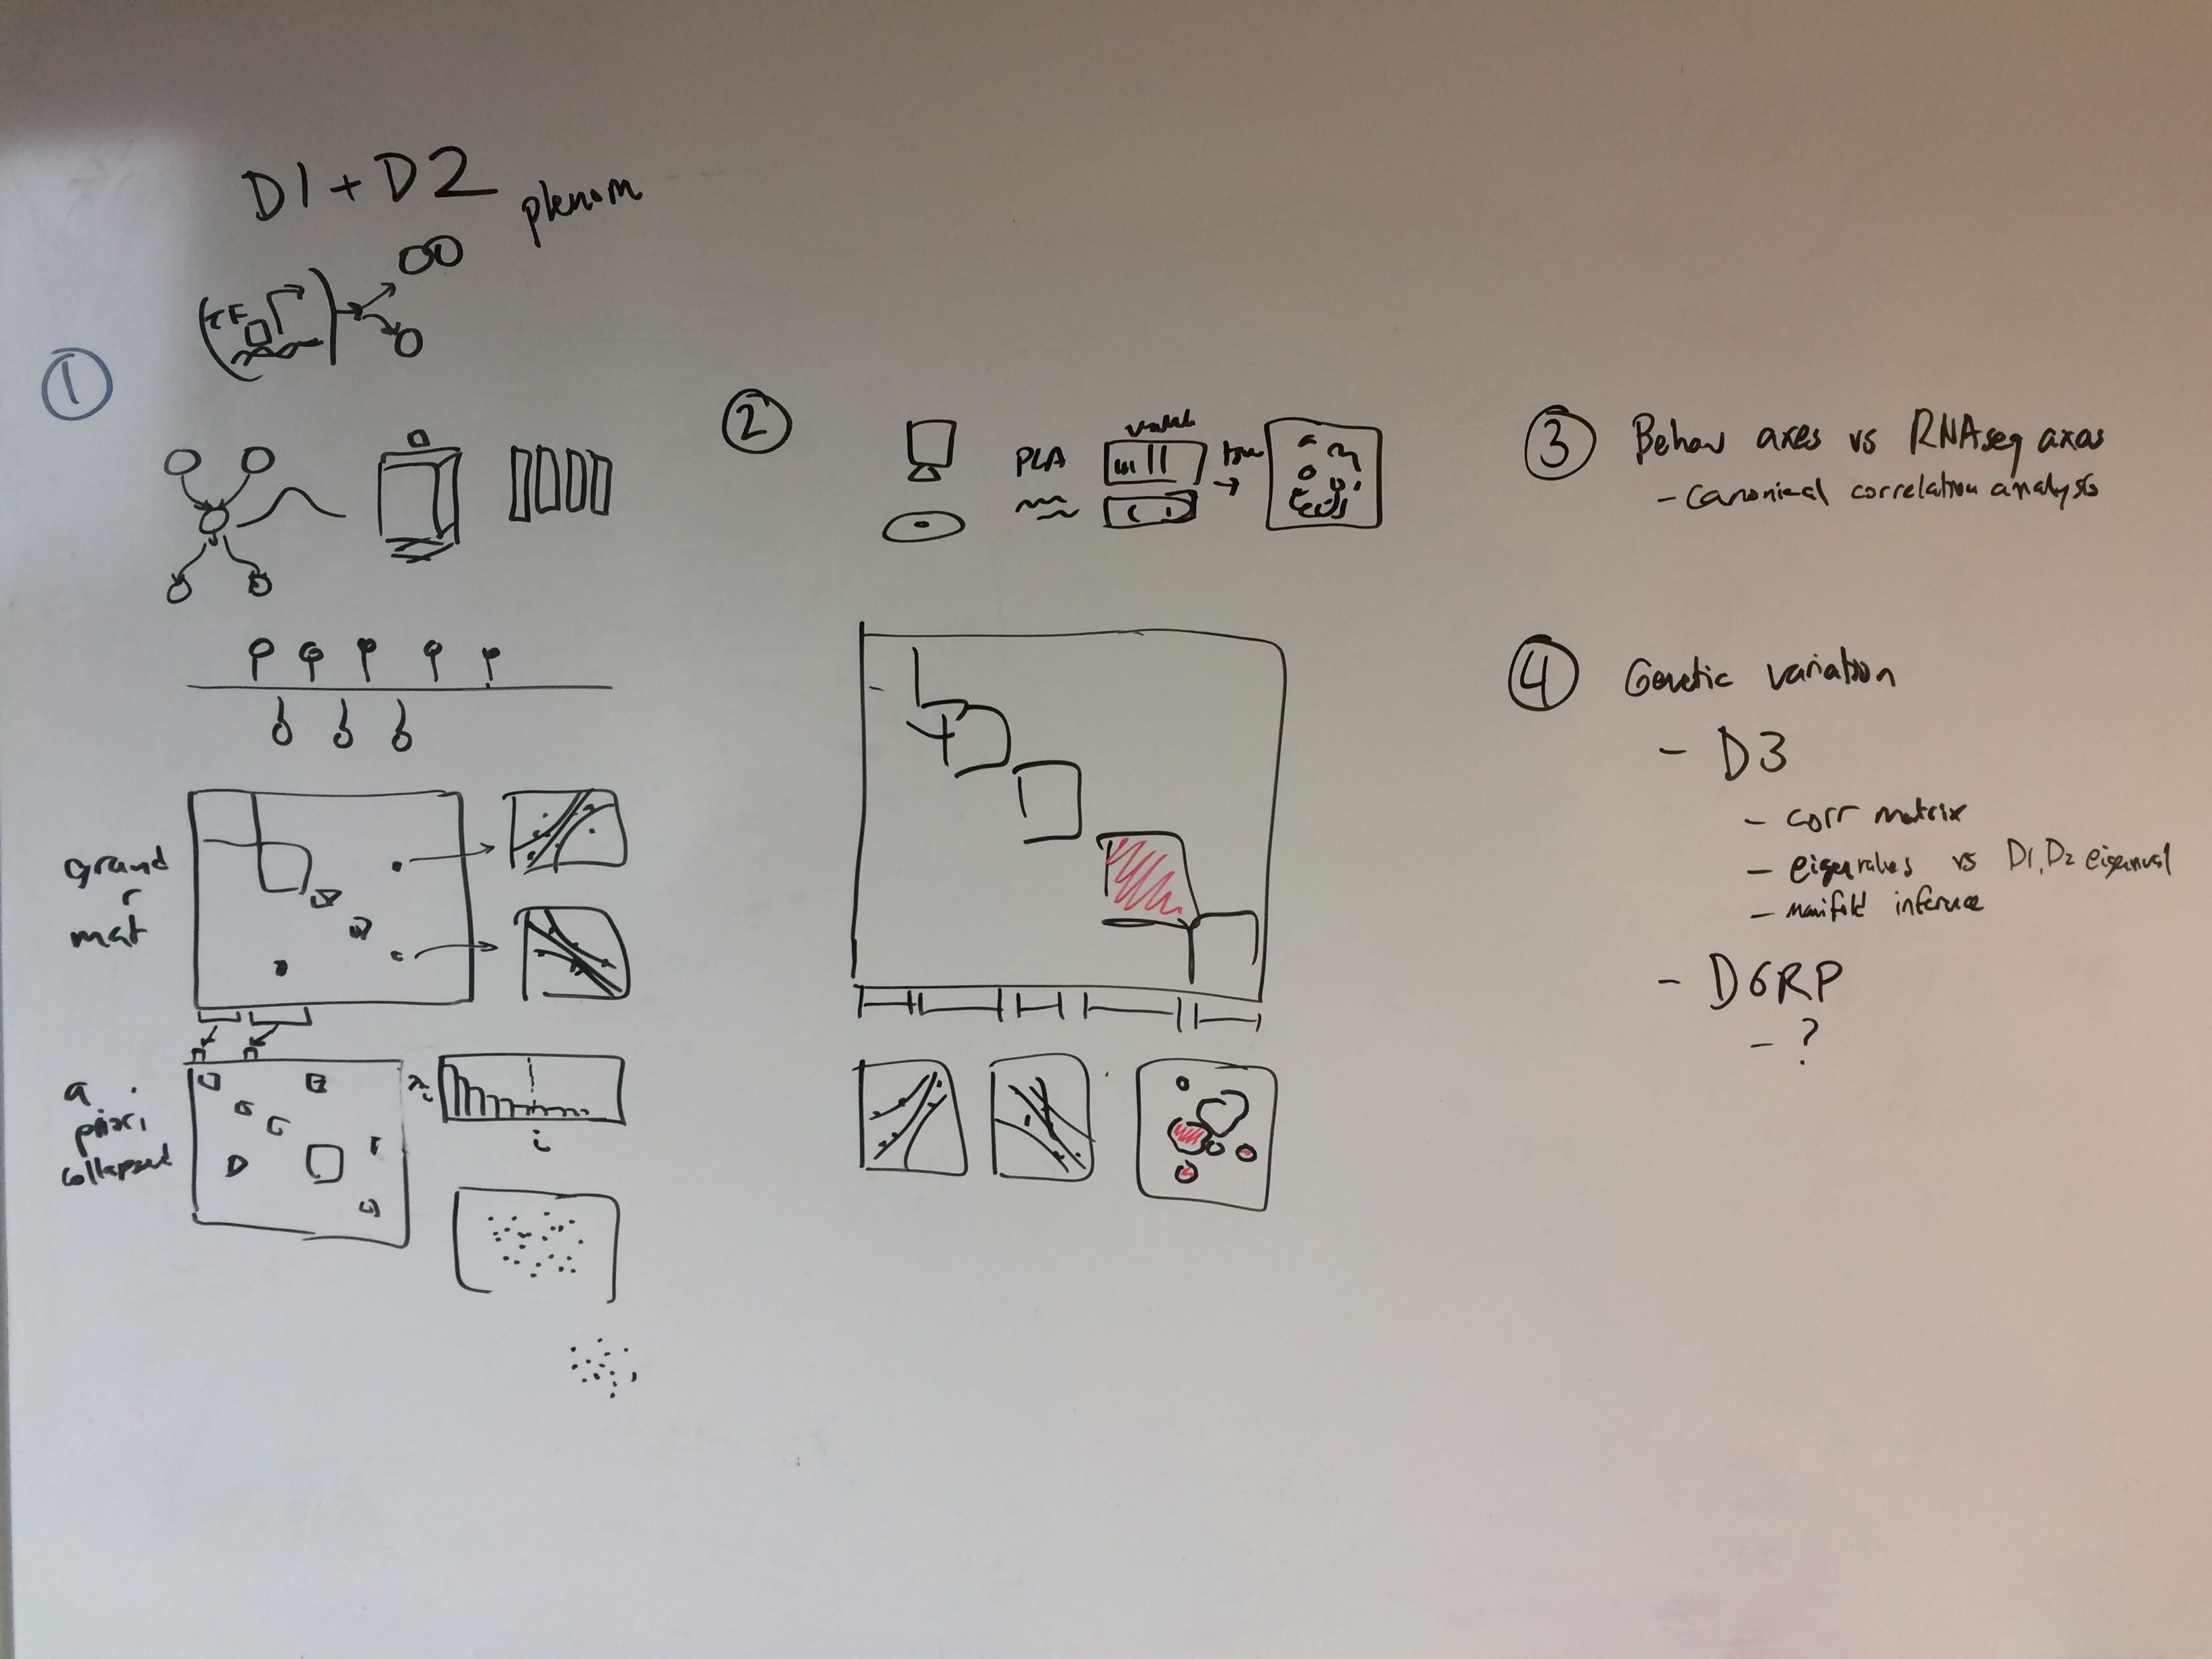 D1 + D2
phenom
TF
1
grand
r
mat
a
priori
collapsed
λi
i
2
PLA
3 Behav axes vs RNAseq axes
- canonical correlation analysis
4 Genetic variation
- D3
- corr matrix
- eigenvalues vs D1, D2 eigenval
- manifold inference
- DGRP
- ?